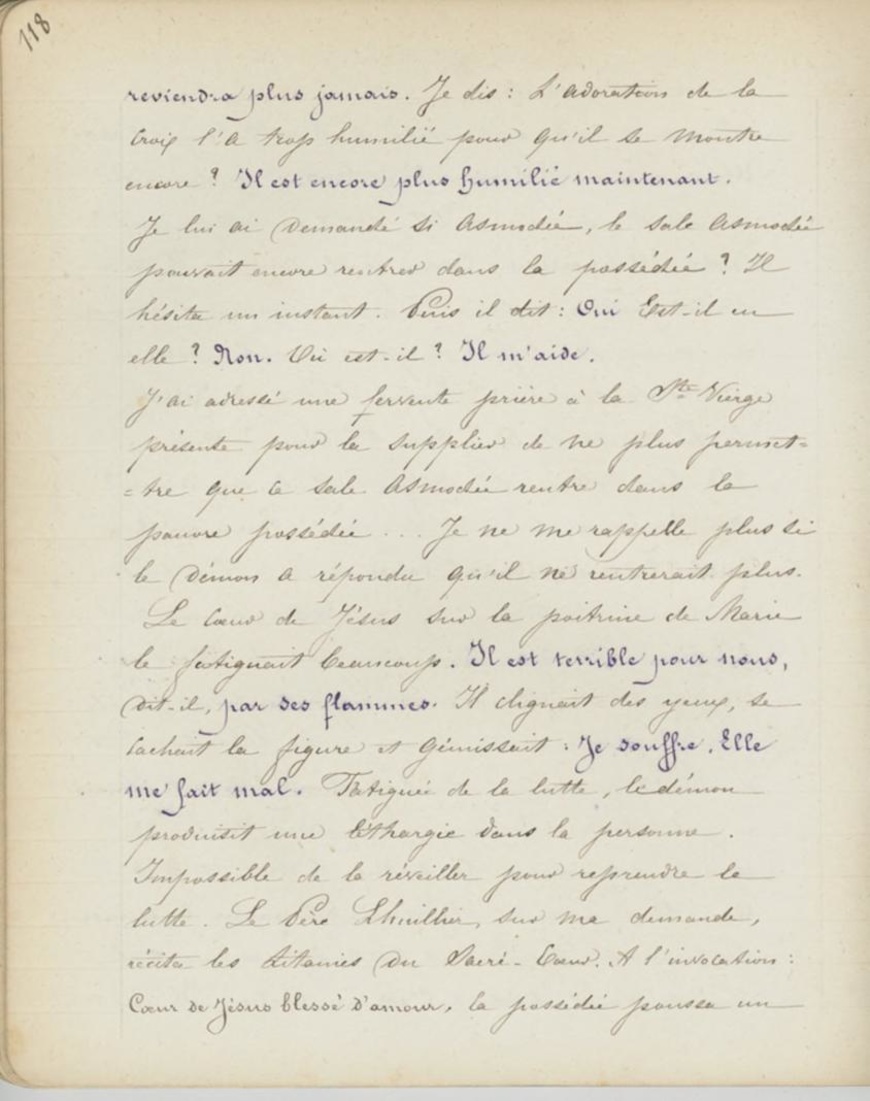 118
reviendra plus jamais. Je dis : L'adoration de la
Croix l'a trop humilié pour qu'il se montre
encore ? Il est encore plus humilié maintenant.
Je lui ai demandé si Asmodée, le sale Asmodée
pouvait encore rentrer dans la possédée ? Il
hésita un instant. Puis il dit : Oui Est-il en
elle ? Non. Où est-il ? Il m'aide.
J'ai adressé une fervente prière à la Ste Vierge
présente pour la supplier de ne plus permet=
=tre que ce sale Asmodée rentre dans la
pauvre possédée ... Je ne me rappelle plus si
le Démon a répondu qu'il ne rentrerait plus.
Le Cœur de Jésus sur la poitrine de Marie
le fatiguait beaucoup. Il est terrible pour nous,
dit-il, par ses flammes. Il clignait des yeux, se
cachait la figure et gémissait : Je souffre. Elle
me fait mal. Fatiguée de la lutte, le démon
produisit une léthargie dans la personne.
Impossible de la réveiller pour reprendre la
lutte. Le Père Lhuillier, sur ma demande,
récita les Litanies du Sacré-Cœur. A l'invocation :
Cœur de Jésus blessé d'amour, la possédée poussa un